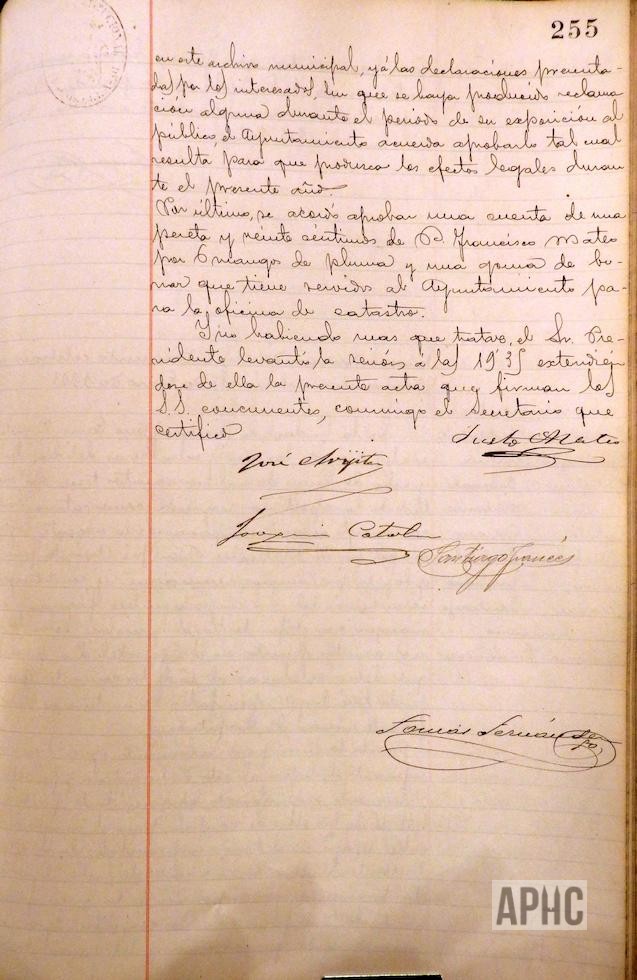 255
en este archivo municipal, y á las declaraciones presenta-
das por los interesados, sin que se haya producido reclama
ción alguna durante el período de su exposición al
público, el Ayuntamiento acuerda aprobarlo tal cual
resulta para que produzca los efectos legales duran
te el presente año.
Por último, se acordó aprobar una cuenta de una
peseta y veinte céntimos de D. Francisco Mateo
por 6 mangos de pluma y una goma de bo-
rrar que tiene servidos al Ayuntamiento pa-
ra la oficina de catastro.
Y no habiendo mas que tratar, el Sr. Pre-
sidente levantó la sesión á las 19'35 extendién
dose de ella la presente acta que firman los
S.S. concurrentes, conmigo el Secretario que
certifico
Justo Mateo
José
Joaquin Catalan
Santiago Francés
Tomás
APHC